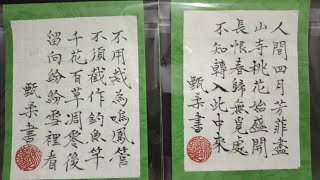 人間四月芳菲盡
山寺桃花始盛開
長恨春歸無覓處
不知轉入此中來
甄柔書
不用裁為鳴鳳管
不須截作釣魚竿
千花百草凋零後
留向紛紛雪裡看
甄柔書